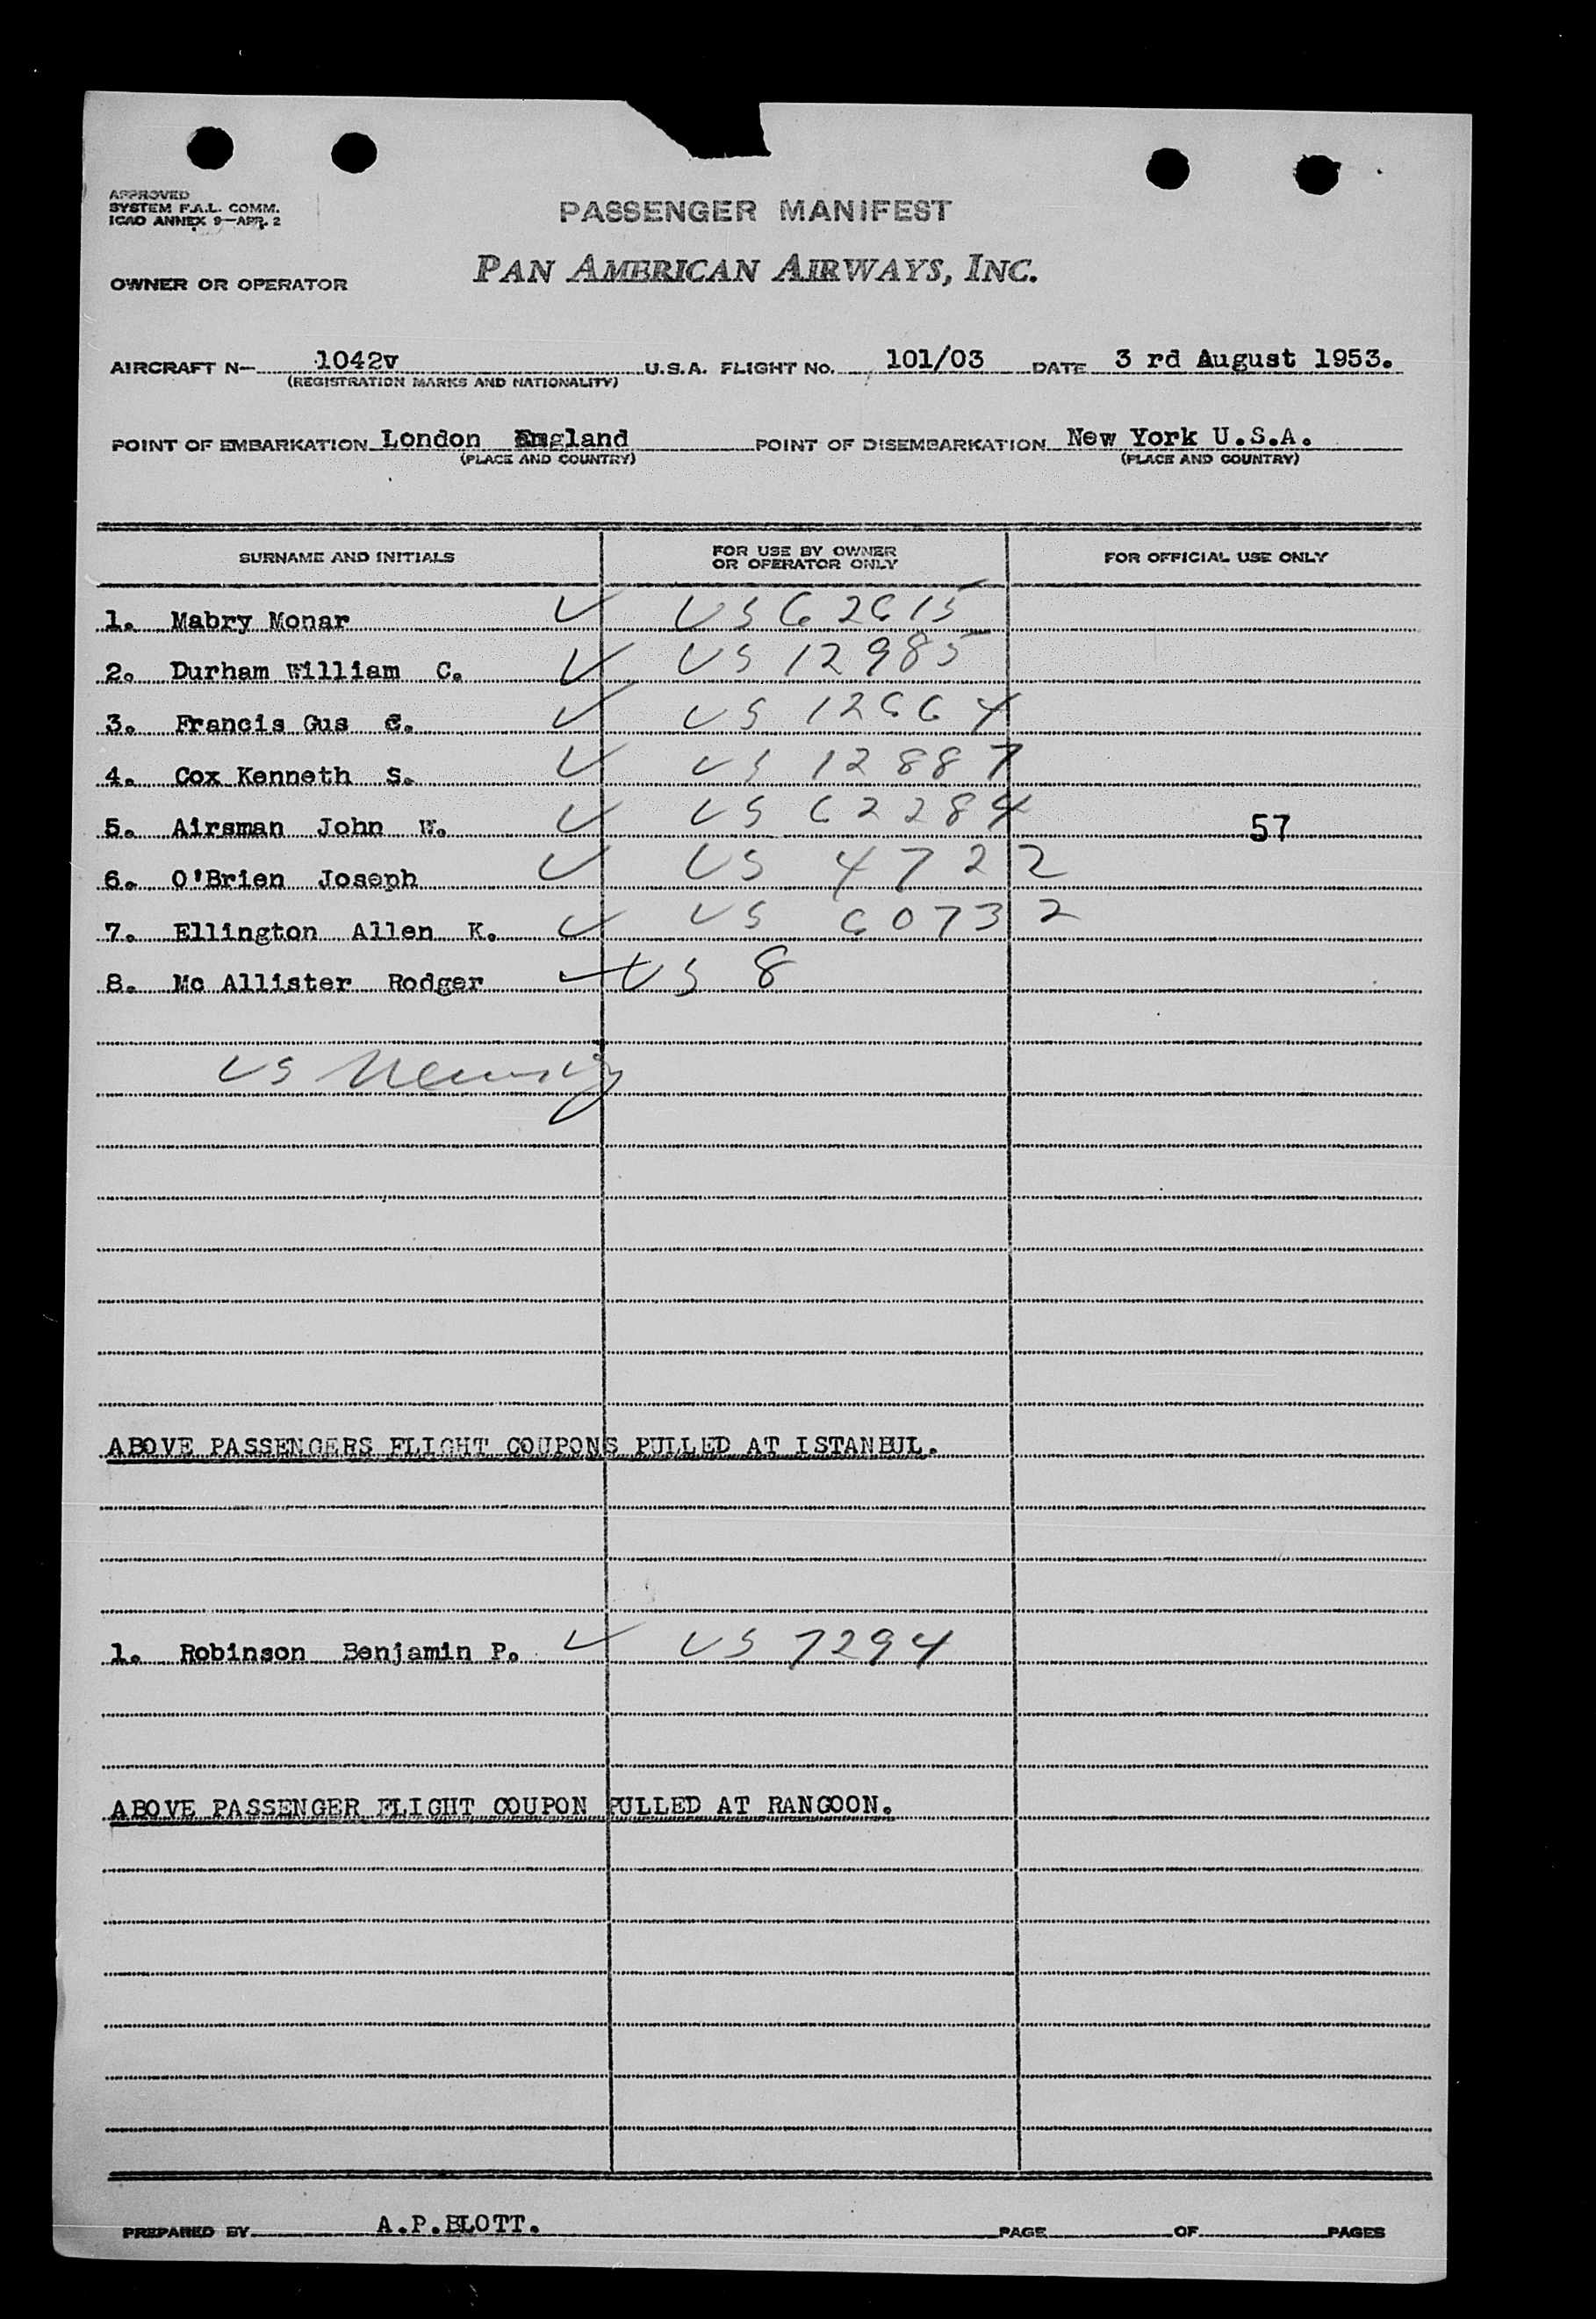 APPROVED
SYSTEM F.A.L. COMM.
ICAO ANNEX 9—APR. 2
PASSENGER MANIFEST
OWNER OR OPERATOR PAN AMERICAN AIRWAYS, INC.
AIRCRAFT N— 1042v U.S.A. FLIGHT NO. 101/03 DATE 3 rd August 1953.
(REGISTRATION MARKS AND NATIONALITY)
POINT OF EMBARKATION London England POINT OF DISEMBARKATION New York U.S.A.
(PLACE AND COUNTRY) (PLACE AND COUNTRY)
SURNAME AND INITIALS FOR USE BY OWNER OR OPERATOR ONLY FOR OFFICIAL USE ONLY
1. Mabry Monar ✓ US 62615
2. Durham William C. ✓ US 12985
3. Francis Gus C. ✓ US 12664
4. Cox Kenneth S. ✓ US 12887
5. Airsman John W. ✓ US 62284 57
6. O'Brien Joseph ✓ US 4722
7. Ellington Allen K. ✓ US 60732
8. Mc Allister Rodger ✓ US 8
US
ABOVE PASSENGERS FLIGHT COUPONS PULLED AT ISTANBUL.
1. Robinson Benjamin P. ✓ US 7294
ABOVE PASSENGER FLIGHT COUPON PULLED AT RANGOON.
PREPARED BY A.P.BLOTT. PAGE OF PAGES